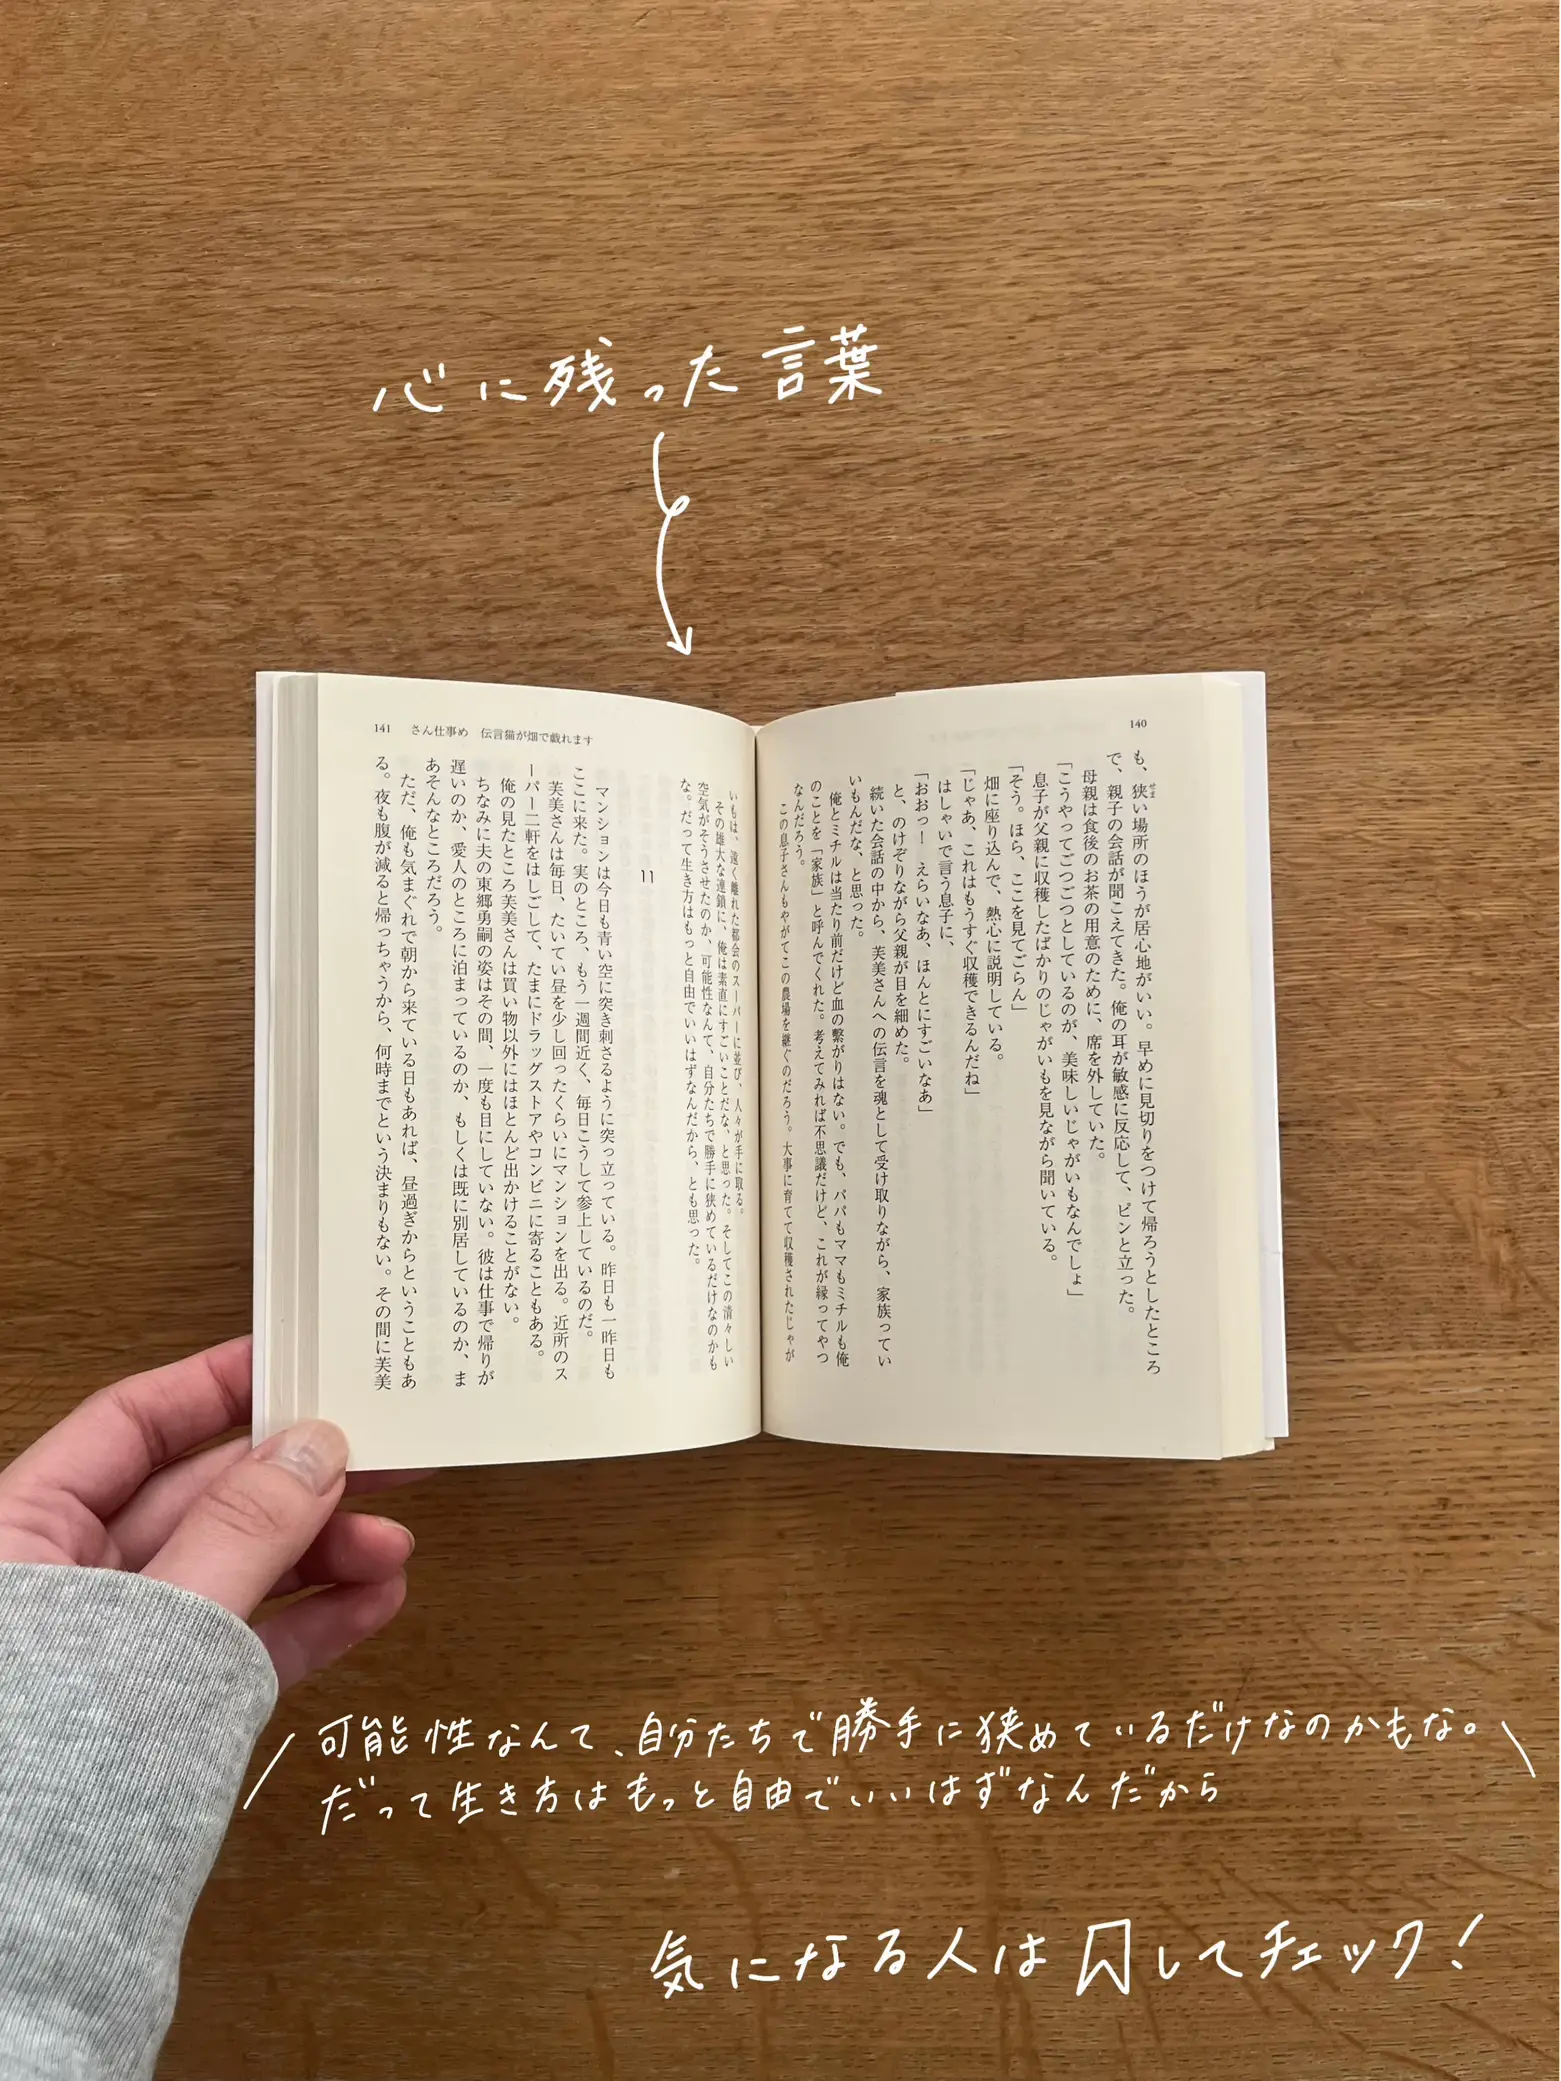 心に残った言葉
140
も、狭い場所のほうが居心地がいい。早めに見切りをつけて帰ろうとしたところ
せま
で、親子の会話が聞こえてきた。俺の耳が敏感に反応して、ピンと立った。
母親は食後のお茶の用意のために、席を外していた。
「こうやってごつごつとしているのが、美味しいじゃがいもなんでしょ」
息子が父親に収穫したばかりのじゃがいもを見ながら聞いている。
「そう。ほら、ここを見てごらん」
畑に座り込んで、熱心に説明している。
「じゃあ、これはもうすぐ収穫できるんだね」
はしゃいで言う息子に、
「おおっ！　えらいなあ、ほんとにすごいなあ」
と、のけぞりながら父親が目を細めた。
続いた会話の中から、芙美さんへの伝言を魂として受け取りながら、家族ってい
いもんだな、と思った。
俺とミチルは当たり前だけど血の繋がりはない。でも、パパもママもミチルも俺
のことを「家族」と呼んでくれた。考えてみれば不思議だけど、これが縁ってやつ
なんだろう。
この息子さんもやがてこの農場を継ぐのだろう。大事に育てて収穫されたじゃが
141 さん仕事め　伝言猫が畑で戯れます
いもは、遠く離れた都会のスーパーに並び、人々が手に取る。
その雄大な連鎖に、俺は素直にすごいことだな、と思った。そしてこの清々しい
空気がそうさせたのか、可能性なんて、自分たちで勝手に狭めているだけなのかも
な。だって生き方はもっと自由でいいはずなんだから、とも思った。
11
マンションは今日も青い空に突き刺さるように突っ立っている。昨日も一昨日も
ここに来た。実のところ、もう一週間近く、毎日こうして参上しているのだ。
芙美さんは毎日、たいてい昼を少し回ったくらいにマンションを出る。近所のス
ーパー二軒をはしごして、たまにドラッグストアやコンビニに寄ることもある。
俺の見たところ芙美さんは買い物以外にはほとんど出かけることがない。
ちなみに夫の東郷勇嗣の姿はその間、一度も目にしていない。彼は仕事で帰りが
遅いのか、愛人のところに泊まっているのか、もしくは既に別居しているのか、ま
あそんなところだろう。
ただ、俺も気まぐれで朝から来ている日もあれば、昼過ぎからということもあ
る。夜も腹が減ると帰っちゃうから、何時までという決まりもない。その間に芙美
可能性なんて、自分たちで勝手に狭めているだけなのかもな。
だって生き方はもっと自由でいいはずなんだから
気になる人は して チェック！